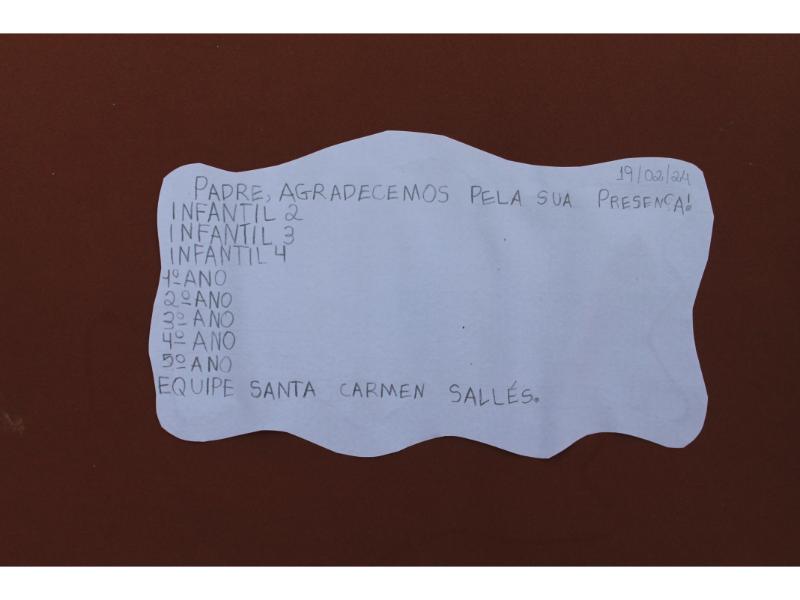 19/02/24
PADRE, AGRADECEMOS PELA SUA PRESENÇA!
INFANTIL 2
INFANTIL 3
INFANTIL 4
1º ANO
2º ANO
3º ANO
4º ANO
5º ANO
EQUIPE SANTA CARMEN SALLÉS.